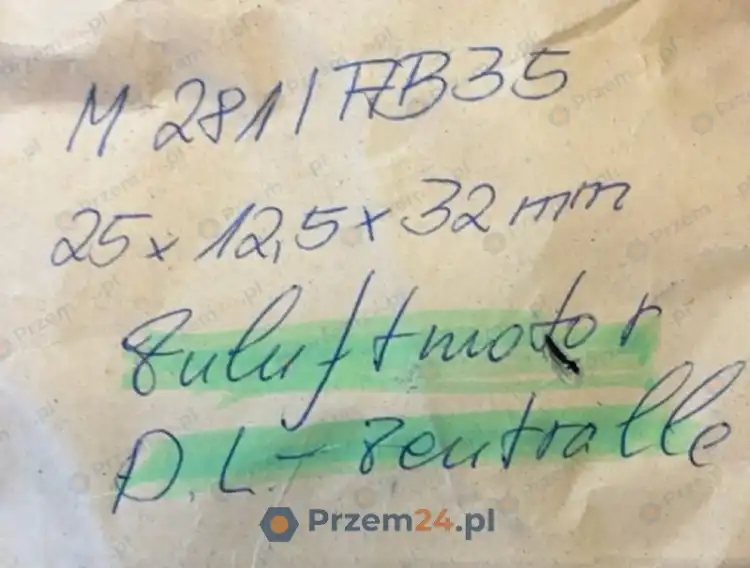 M 281 / AB35
25 x 12,5 x 32 mm
Zuluftmotor
D.L.- zentralle
Przem24.pl